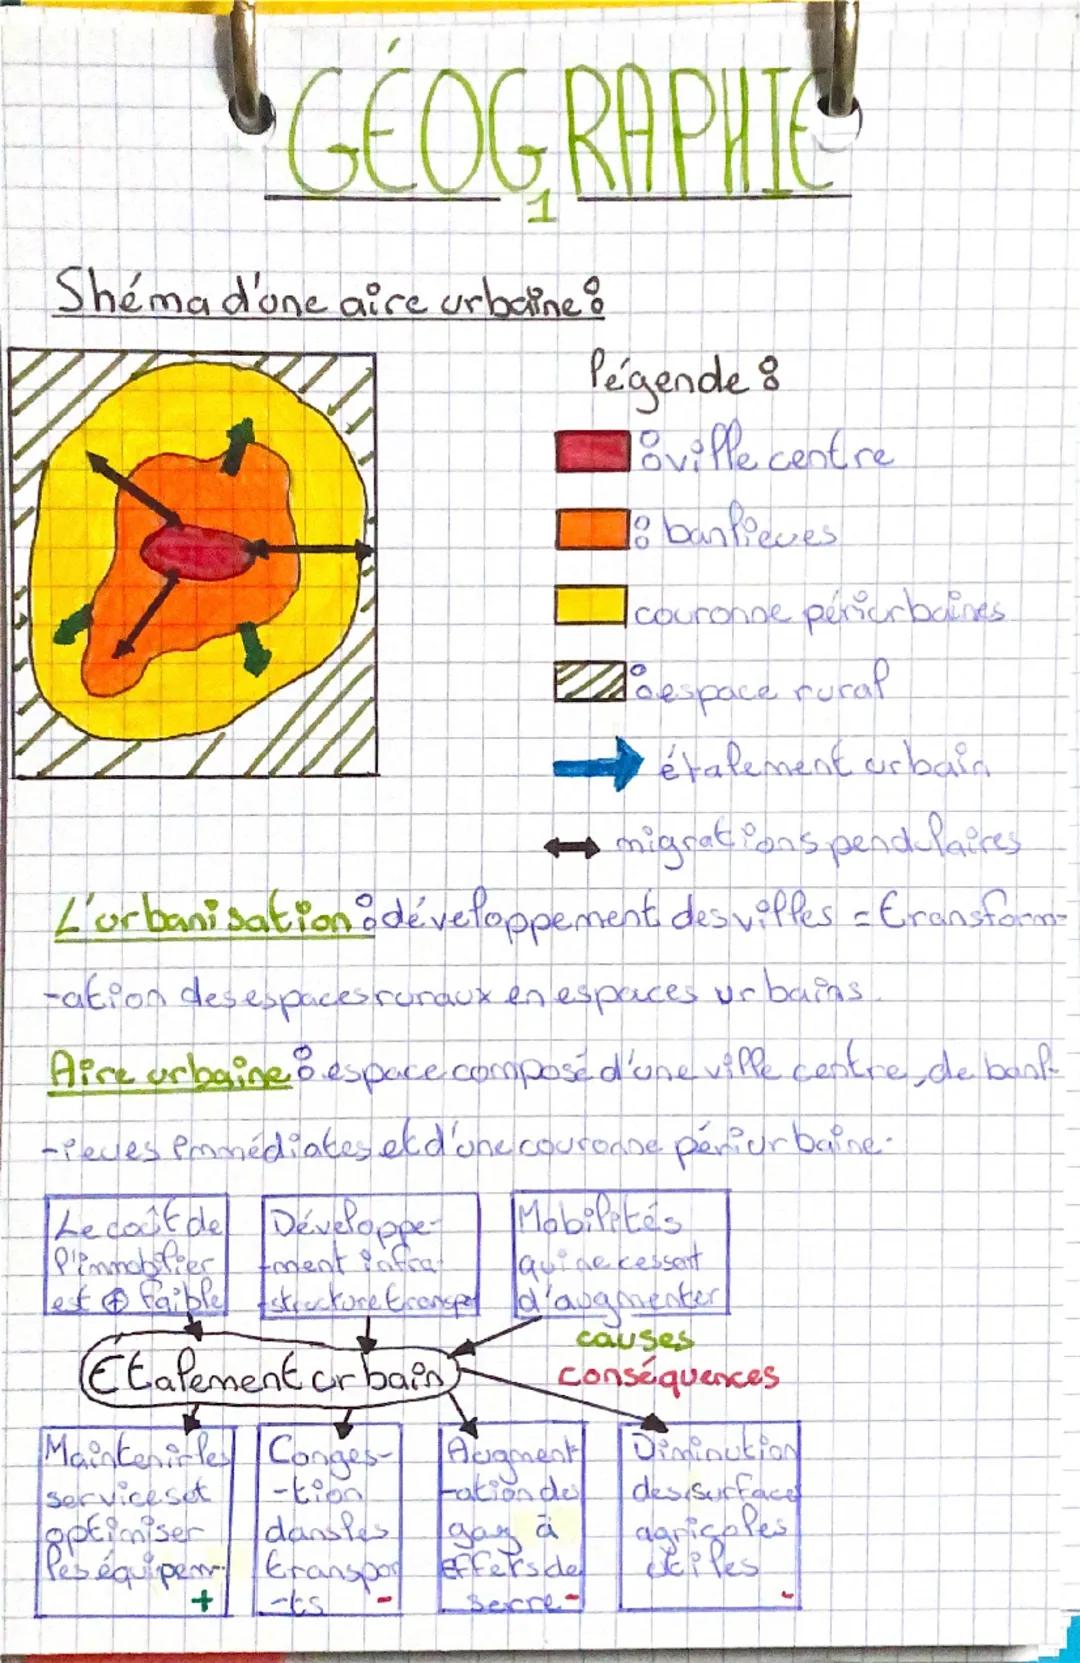 GÉOGRAPHIE
1
Shéma d'une aire urbaine :
légende :
: ville centre
: banlieues
couronne périurbaines
: espace rural
étalement urbain
migrations pendulaires
L'urbanisation : développement des villes = transform-
-ation des espaces ruraux en espaces urbains.
Aire urbaine : espace composé d'une ville centre, de banl-
-ieues immédiates et d'une couronne périurbaine.
Le coût de
l'immobilier
est + faible
Développe-
-ment infra
structure transpo
Mobilités
qui ne cessent
d'augmenter
causes
conséquences
Étalement urbain
Maintenir les
services et
optimiser
les équipem-
+
Conges-
-tion
dans les
transpor
-ts -
Augment
-ation des
gaz à
effets de
serre -
Diminution
des surface
agricoles
utiles
-